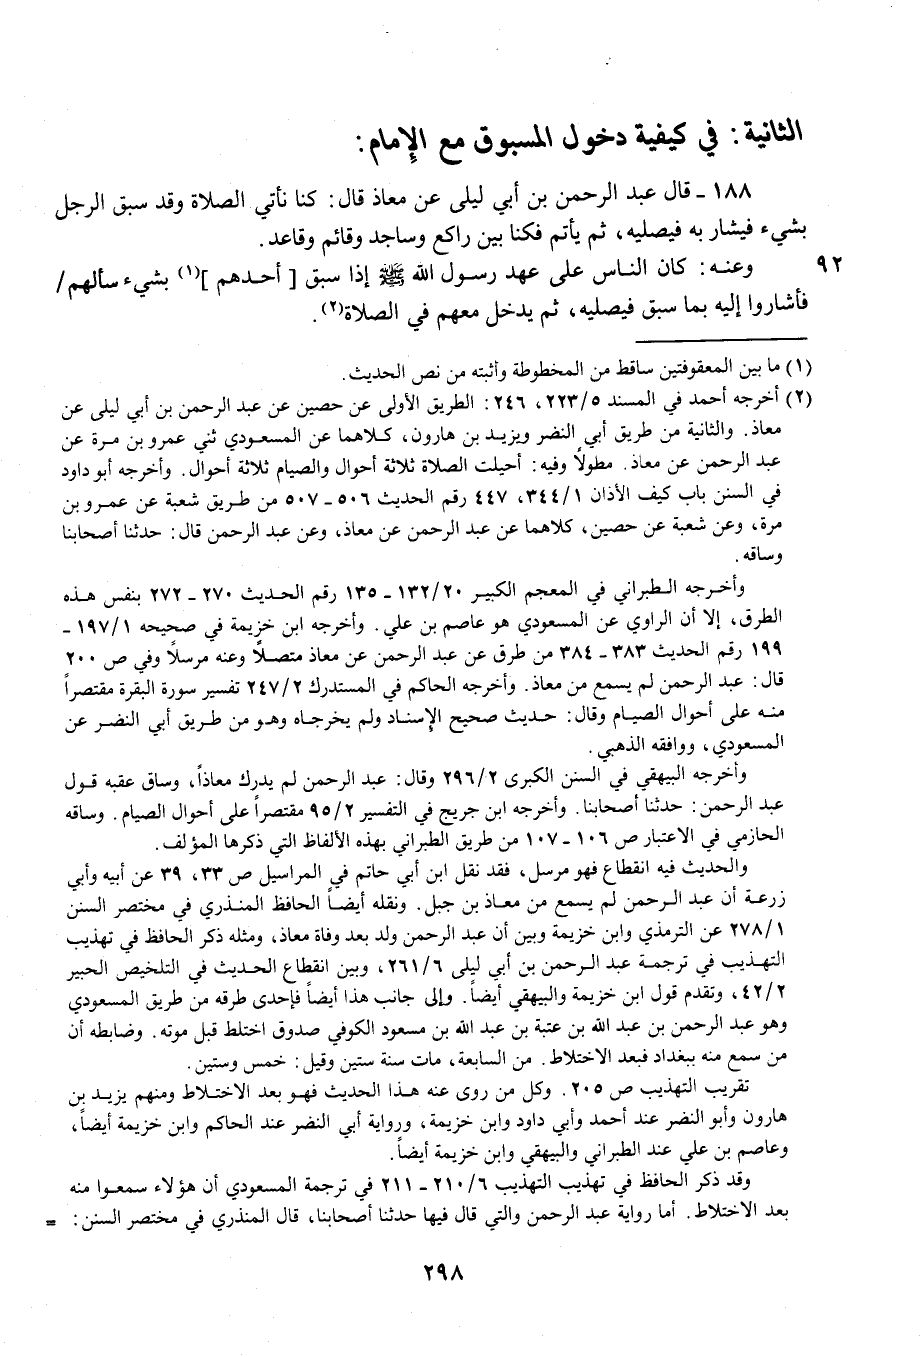 الثانية: في كيفية دخول المسبوق مع الإمام:
١٨٨ ـ قال عبد الرحمن بن أبي ليلى عن معاذ قال: كنا نأتي الصلاة وقد سبق الرجل
بشيء فيشار به فيصليه، ثم يأتم فكنا بين راكع وساجد وقائم وقاعد.
٩٢ وعنه: كان الناس على عهد رسول الله ﷺ إذا سبق [ أحدهم ](١) بشيء سألهم/
فأشاروا إليه بما سبق فيصليه، ثم يدخل معهم في الصلاة(٢).
(١) ما بين المعقوفتين ساقط من المخطوطة وأثبته من نص الحديث.
(٢) أخرجه أحمد في المسند ٢٢٣/٥، ٢٤٦: الطريق الأولى عن حصين عن عبد الرحمن بن أبي ليلى عن
معاذ. والثانية من طريق أبي النضر ويزيد بن هارون، كلاهما عن المسعودي ثني عمرو بن مرة عن
عبد الرحمن عن معاذ. مطولاً وفيه: أحيلت الصلاة ثلاثة أحوال والصيام ثلاثة أحوال. وأخرجه أبو داود
في السنن باب كيف الأذان ٣٤٤/١، ٤٤٧ رقم الحديث ٥٠٦ ـ ٥٠٧ من طريق شعبة عن عمرو بن
مرة، وعن شعبة عن حصين، كلاهما عن عبد الرحمن عن معاذ، وعن عبد الرحمن قال: حدثنا أصحابنا
وساقه.
وأخرجه الطبراني في المعجم الكبير ١٣٢/٢٠ ـ ١٣٥ رقم الحديث ٢٧٠ ـ ٢٧٢ بنفس هذه
الطرق، إلا أن الراوي عن المسعودي هو عاصم بن علي. وأخرجه ابن خزيمة في صحيحه ١٩٧/١ ـ
١٩٩ رقم الحديث ٣٨٣ ـ ٣٨٤ من طرق عن عبد الرحمن عن معاذ متصلاً وعنه مرسلاً وفي ص ٢٠٠
قال: عبد الرحمن لم يسمع من معاذ. وأخرجه الحاكم في المستدرك ٢٤٧/٢ تفسير سورة البقرة مقتصراً
منه على أحوال الصيام وقال: حديث صحيح الإسناد ولم يخرجاه وهو من طريق أبي النضر عن
المسعودي، ووافقه الذهبي.
وأخرجه البيهقي في السنن الكبرى ٢٩٦/٢ وقال: عبد الرحمن لم يدرك معاذاً، وساق عقبه قول
عبد الرحمن: حدثنا أصحابنا. وأخرجه ابن جريج في التفسير ٩٥/٢ مقتصراً على أحوال الصيام. وساقه
الحازمي في الاعتبار ص ١٠٦ ـ ١٠٧ من طريق الطبراني بهذه الألفاظ التي ذكرها المؤلف.
والحديث فيه انقطاع فهو مرسل، فقد نقل ابن أبي حاتم في المراسيل ص ٣٣، ٣٩ عن أبيه وأبي
زرعة أن عبد الرحمن لم يسمع من معاذ بن جبل. ونقله أيضاً الحافظ المنذري في مختصر السنن
٢٧٨/١ عن الترمذي وابن خزيمة وبين أن عبد الرحمن ولد بعد وفاة معاذ، ومثله ذكر الحافظ في تهذيب
التهذيب في ترجمة عبد الرحمن بن أبي ليلى ٢٦١/٦، وبين انقطاع الحديث في التلخيص الحبير
٤٢/٢، وتقدم قول ابن خزيمة والبيهقي أيضاً. وإلى جانب هذا أيضاً فإحدى طرقه من طريق المسعودي
وهو عبد الرحمن بن عبد الله بن عتبة بن عبد الله بن مسعود الكوفي صدوق اختلط قبل موته. وضابطه أن
من سمع منه ببغداد فبعد الاختلاط. من السابعة، مات سنة ستين وقيل: خمس وستين.
تقريب التهذيب ص ٢٠٥. وكل من روى عنه هذا الحديث فهو بعد الاختلاط ومنهم يزيد بن
هارون وأبو النضر عند أحمد وأبي داود وابن خزيمة، ورواية أبي النضر عند الحاكم وابن خزيمة أيضاً،
وعاصم بن علي عند الطبراني والبيهقي وابن خزيمة أيضاً.
وقد ذكر الحافظ في تهذيب التهذيب ٢١٠/٦ ـ ٢١١ في ترجمة المسعودي أن هؤلاء سمعوا منه
بعد الاختلاط. أما رواية عبد الرحمن والتي قال فيها حدثنا أصحابنا، قال المنذري في مختصر السنن: =
٢٩٨